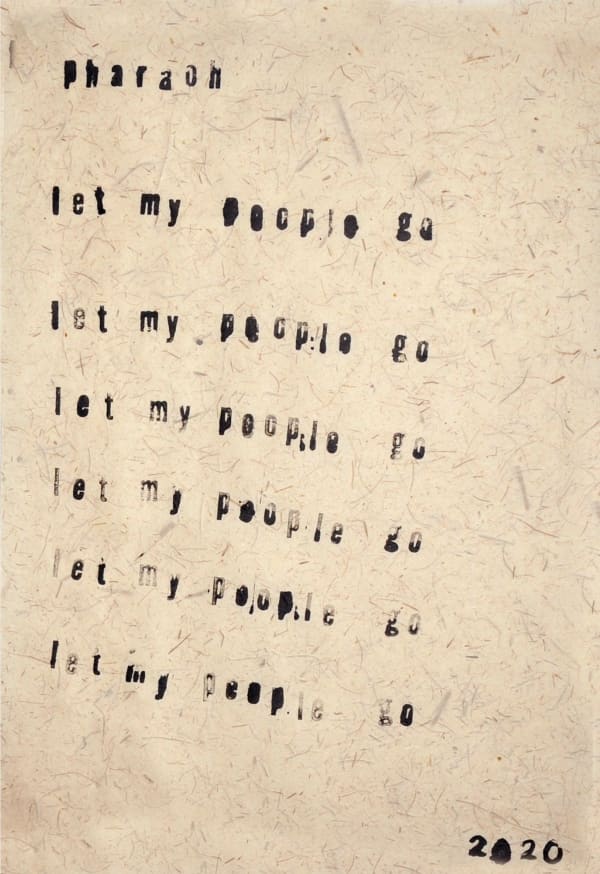 pharaoh
let my people go
let my people go
let my people go
let my people go
let my people go
let my people go
2020